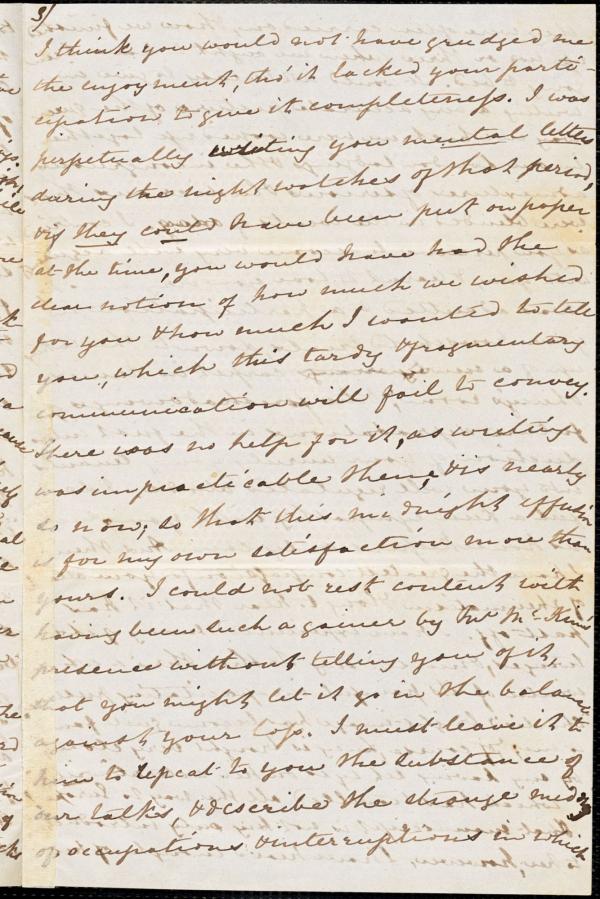 3/
I think you would not have grudged me
the enjoyment, tho' it lacked your parti-
cipation to give it completeness. I was
perpetually writing you mental letters
during the night watches of that period,
& if they could have been put on paper
at the time, you would have had the
clear notion of how much we wished
for you & how much I wanted to tell
you, which this tardy & fragmentary
communication will fail to convey.
There was no help for it, as writing
was impracticable then, & is nearly
so now; so that this midnight effusion
is for my own satisfaction more than
yours. I could not rest content with
having been such a gainer by Mr. McKim's
presence without telling you of it,
that you might let it go in the balance
against your loss. I must leave it to
him to repeat to you the substance of
our talks, & describe the strange medley
of occupations & interruptions in which